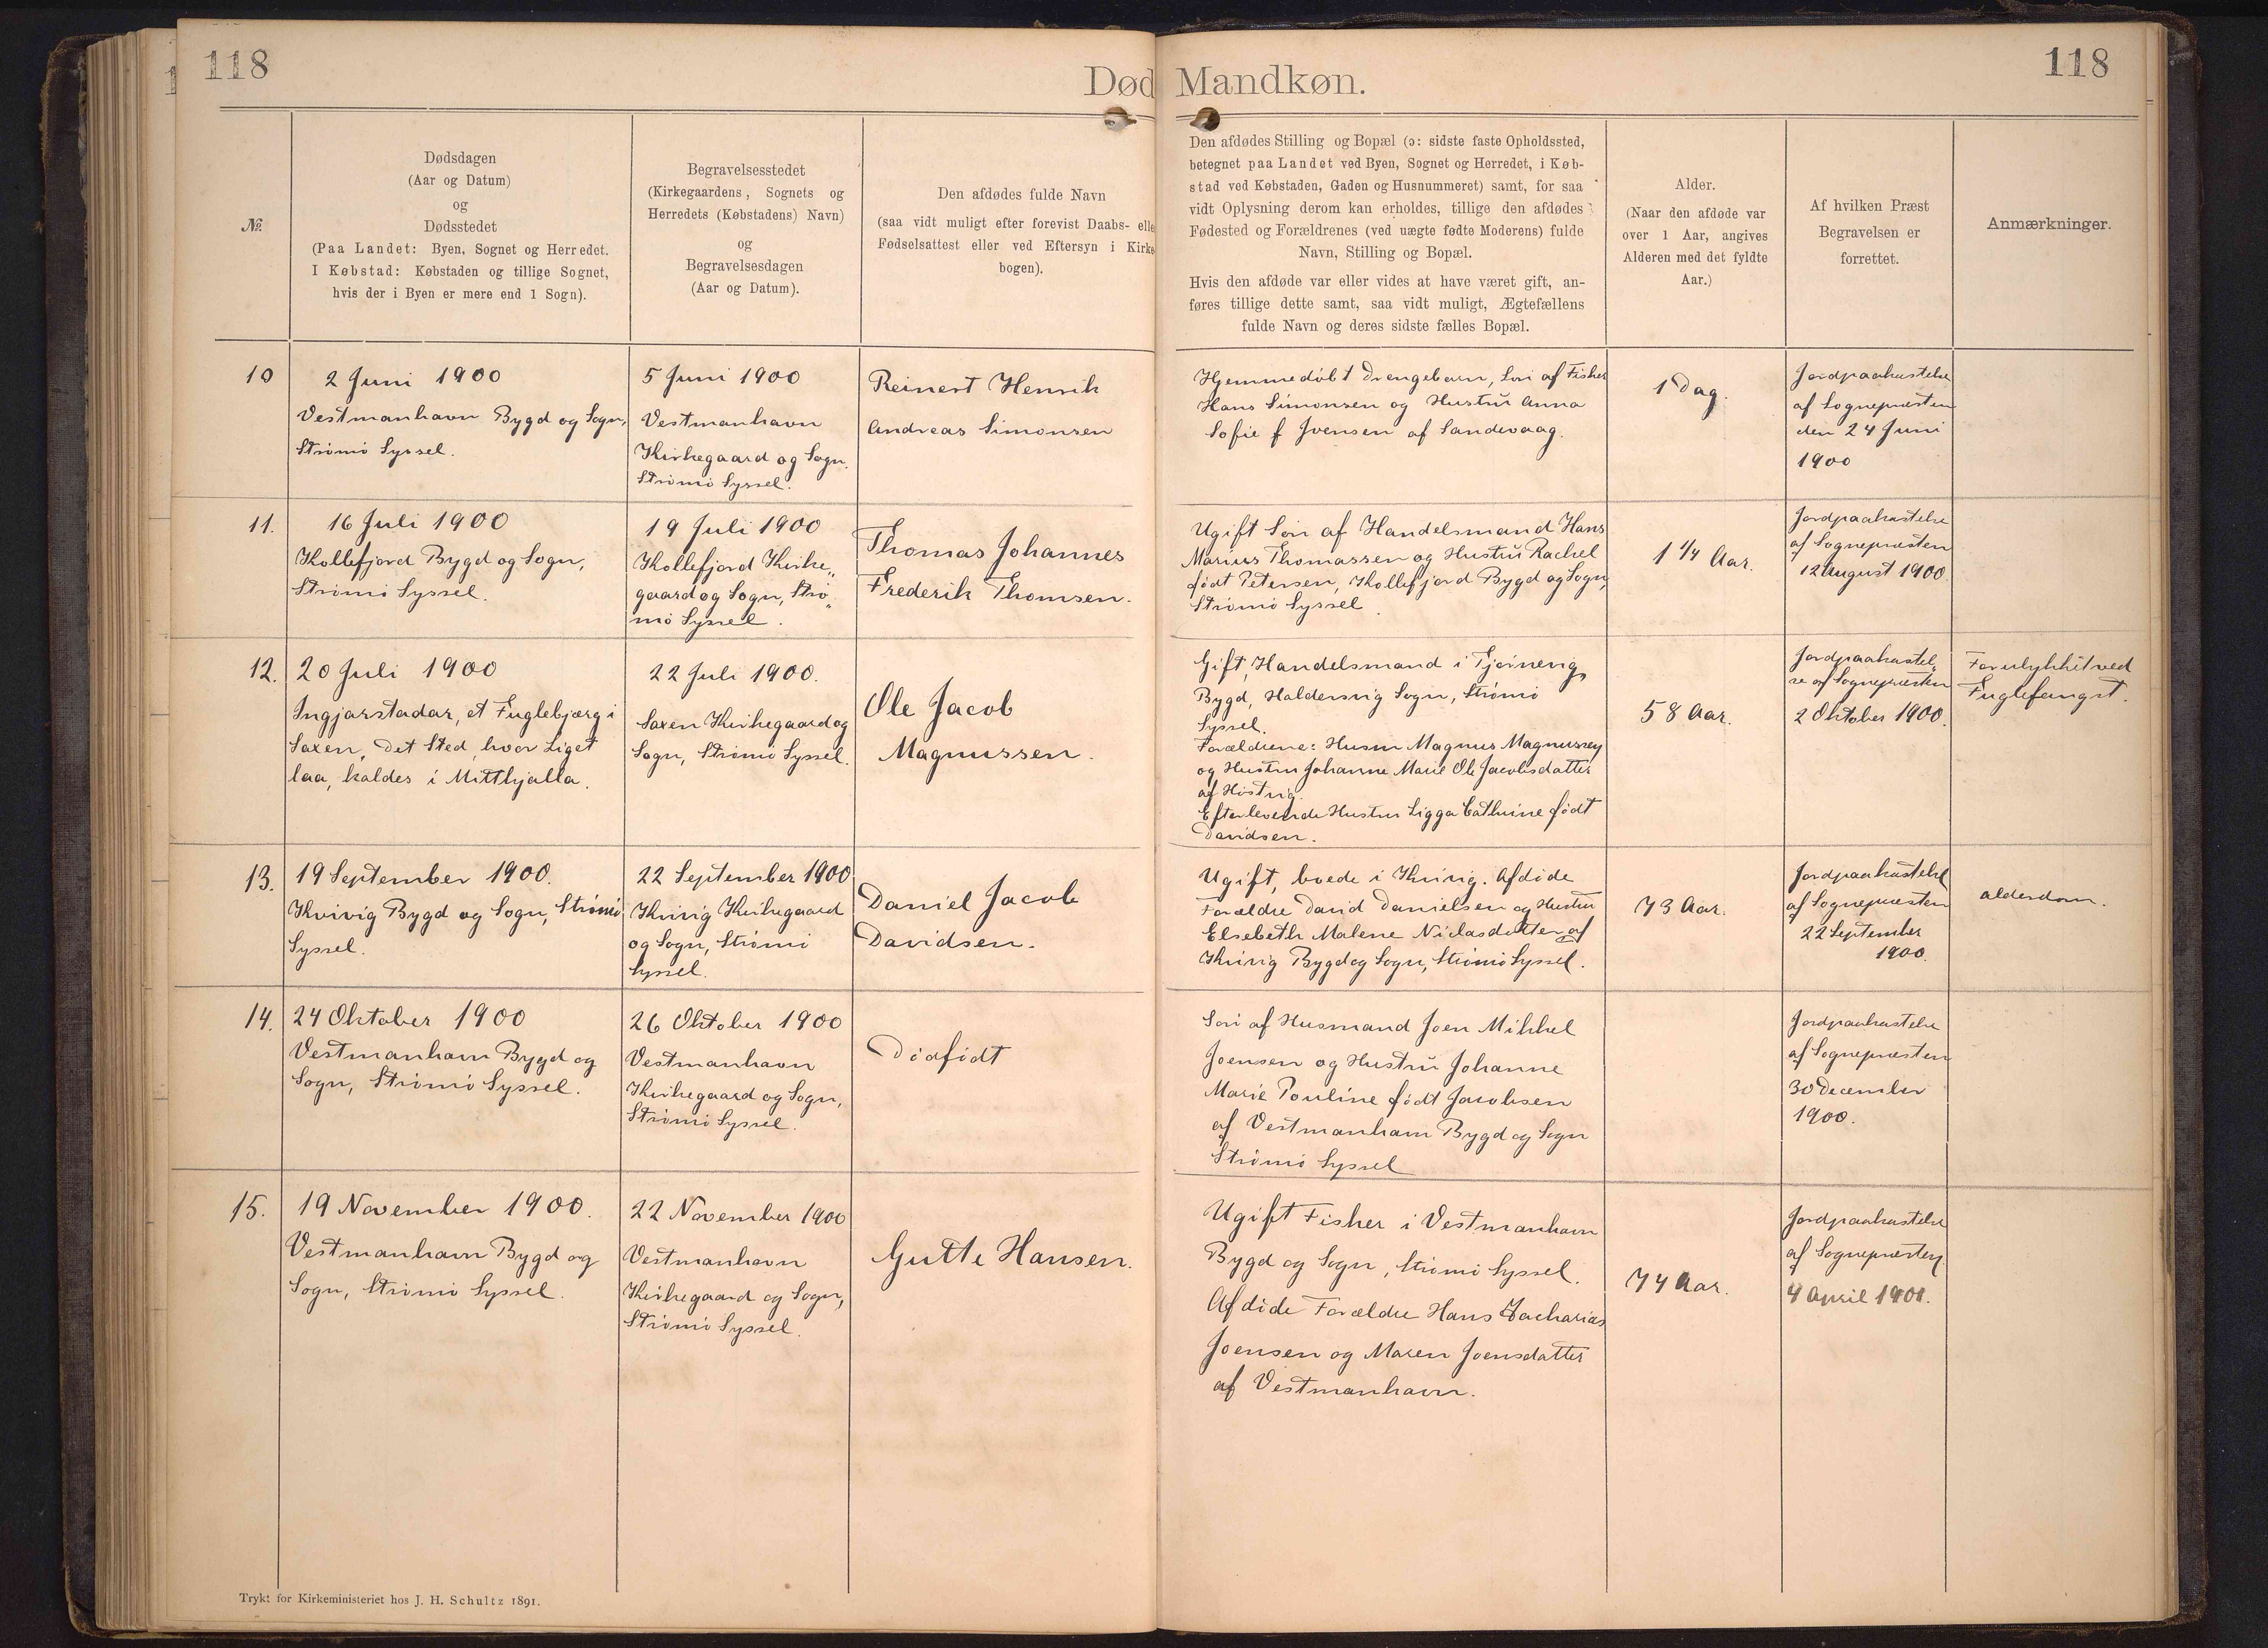 118
Død
Mandkøn.
118
№.
Dødsdagen
(Aar og Datum)
og
Dødsstedet
(Paa Landet: Byen, Sognet og Herredet.
I Købstad: Købstaden og tillige Sognet,
hvis der i Byen er mere end 1 Sogn).
Begravelsesstedet
(Kirkegaardens, Sognets og
Herredets (Købstadens) Navn)
og
Begravelsesdagen
(Aar og Datum).
Den afdødes fulde Navn
(saa vidt muligt efter forevist Daabs- elle
Fødselsattest eller ved Eftersyn i Kirke
bogen).
Den afdødes Stilling og Bopæl (ɔ: sidste faste Opholdssted,
betegnet paa Landet ved Byen, Sognet og Herredet, i Køb-
stad ved Købstaden, Gaden og Husnummeret) samt, for saa
vidt Oplysning derom kan erholdes, tillige den afdødes
Fødested og Forældrenes (ved uægte fødte Moderens) fulde
Navn, Stilling og Bopæl.
Hvis den afdøde var eller vides at have været gift, an-
føres tillige dette samt, saa vidt muligt, Ægtefællens
fulde Navn og deres sidste fælles Bopæl.
Alder.
(Naar den afdøde var
over 1 Aar, angives
Alderen med det fyldte
Aar.)
Af hvilken Præst
Begravelsen er
forrettet.
Anmærkninger.
10
2 Juni 1900
Vestmanhavn Bygd og Sogn,
Strömö Syssel.
5 Juni 1900
Vestmanhavn
Kirkegaard og Sogn.
Strömö Syssel.
Reinert Henrik
Andreas Simonsen
Hjemmedöbt Drengebarn, Sön af Fisker
Hans Simonsen og Hustru Anna
Sofie f Joensen af Sandevaag.
1 Dag.
Jordpaakastelse
af Sognepræsten
den 24 Juni
1900
11.
16 Juli 1900
Kollefjord Bygd og Sogn,
Strömö Syssel.
19 Juli 1900
Kollefjord Kirke„
gaard og Sogn, Strö„
mö Syssel.
Thomas Johannes
Frederik Thomsen.
Ugift Sön af Handelsmand Hans
Marius Thomassen og Hustru Rachel
födt Petersen, Kollefjord Bygd og Sogn,
Strömö Syssel.
1 1/4 Aar.
Jordpaakastelse
af Sognepræsten
12 August 1900.
12.
20 Juli 1900
Ingjarstadar, et Fuglebjærg i
Saxen, Det Sted, hvor Liget
laa, kaldes i Mitthjalla.
22 Juli 1900.
Saxen Kirkegaard og
Sogn, Strömö Syssel.
Ole Jacob
Magnussen.
Gift, Handelsmand i Tjörnevig
Bygd, Haldersvig Sogn, Strömö
Syssel.
Forældrene: Husm Magnus Magnussen
og Hustru Johanne Marie Ole Jacobsdatter
af Höstvig.
Efterlevende Hustru Sigga Cathrine födt
Davidsen.
58 Aar.
Jordpaakastel„
se af Sognepræsten
2 Oktober 1900.
Forulykket ved
Fuglefangst.
13.
19 September 1900.
Kvivig Bygd og Sogn, Strömö
Syssel.
22 September 1900
Kvivig Kirkegaard
og Sogn, Strömö
Syssel.
Daniel Jacob
Davidsen.
Ugift, boede i Kvivig. Afdöde
Forældre David Danielsen og Hustru
Elsebeth Malene Niclasdatter af
Kvivig Bygd og Sogn, Strömö Syssel.
73 Aar.
Jordpaakastelse
af Sognepræsten
22 September
1900.
alderdom.
14.
24 Oktober 1900
Vestmanhavn Bygd og
Sogn, Strömö Syssel.
26 Oktober 1900
Vestmanhavn
Kirkegaard og Sogn,
Strömö Syssel.
Dödfödt
Sön af Husmand Joen Mikkel
Joensen og Hustru Johanne
Marie Pouline födt Jacobsen
af Vestmanhavn Bygd og Sogn
Strömö Syssel
Jordpaakastelse
af Sognepræsten
30 December
1900.
15.
19 November 1900.
Vestmanhavn Bygd og
Sogn, Strömö Syssel.
22 November 1900
Vestmanhavn
Kirkegaard og Sogn,
Strömö Syssel.
Gutte Hansen.
Ugift Fisker i Vestmanhavn
Bygd og Sogn, Strömö Syssel.
Afdöde Forældre Hans Zacharias
Joensen og Maren Joensdatter
af Vestmanhavn.
74 Aar.
Jordpaakastelse
af Sognepræsten
4 April 1901.
Trykt for Kirkeministeriet hos J. H. Schultz 1891.